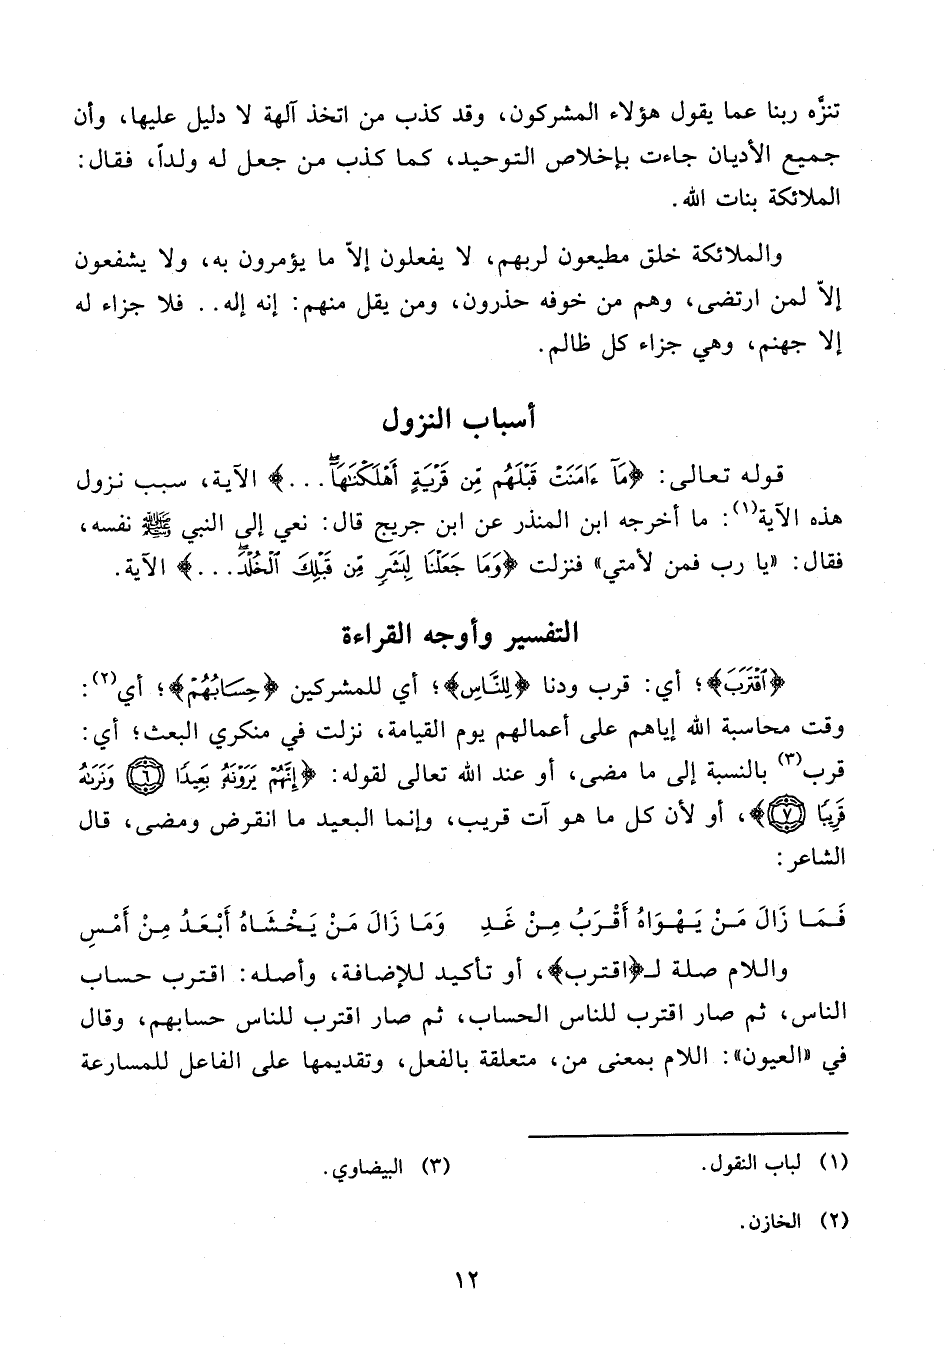 تنزَّه ربنا عما يقول هؤلاء المشركون، وقد كذب من اتخذ آلهة لا دليل عليها، وأن
جميع الأديان جاءت بإخلاص التوحيد، كما كذب من جعل له ولداً، فقال:
الملائكة بنات الله.
والملائكة خلق مطيعون لربهم، لا يفعلون إلاّ ما يؤمرون به، ولا يشفعون
إلاّ لمن ارتضى، وهم من خوفه حذرون، ومن يقل منهم: إنه إله.. فلا جزاء له
إلا جهنم، وهي جزاء كل ظالم.
أسباب النزول
قوله تعالى: ﴿مَآ ءَامَنَتْ قَبْلَهُم مِّن قَرْيَةٍ أَهْلَكْنَٰهَآۖ...﴾ الآية، سبب نزول
هذه الآية(١): ما أخرجه ابن المنذر عن ابن جريج قال: نعي إلى النبي ﷺ نفسه،
فقال: «يا رب فمن لأمتي» فنزلت ﴿وَمَا جَعَلْنَا لِبَشَرٍ مِّن قَبْلِكَ ٱلْخُلْدَۖ...﴾ الآية.
التفسير وأوجه القراءة
﴿ٱقْتَرَبَ﴾؛ أي: قرب ودنا ﴿لِلنَّاسِ﴾؛ أي للمشركين ﴿حِسَابُهُمْ﴾؛ أي(٢):
وقت محاسبة الله إياهم على أعمالهم يوم القيامة، نزلت في منكري البعث؛ أي:
قرب(٣) بالنسبة إلى ما مضى، أو عند الله تعالى لقوله: ﴿إِنَّهُمْ يَرَوْنَهُۥ بَعِيدًا ٦ وَنَرَىٰهُ
قَرِيبًا ٧﴾، أو لأن كل ما هو آت قريب، وإنما البعيد ما انقرض ومضى، قال
الشاعر:
فَمَا زَالَ مَنْ يَهْوَاهُ أَقْرَبُ مِنْ غَدِ وَمَا زَالَ مَنْ يَخْشَاهُ أَبْعَدُ مِنْ أَمْسِ
واللام صلة لـ﴿اقترب﴾، أو تأكيد للإضافة، وأصله: اقترب حساب
الناس، ثم صار اقترب للناس الحساب، ثم صار اقترب للناس حسابهم، وقال
في «العيون»: اللام بمعنى من، متعلقة بالفعل، وتقديمها على الفاعل للمسارعة
(١) لباب النقول.
(٢) الخازن.
(٣) البيضاوي.
١٢